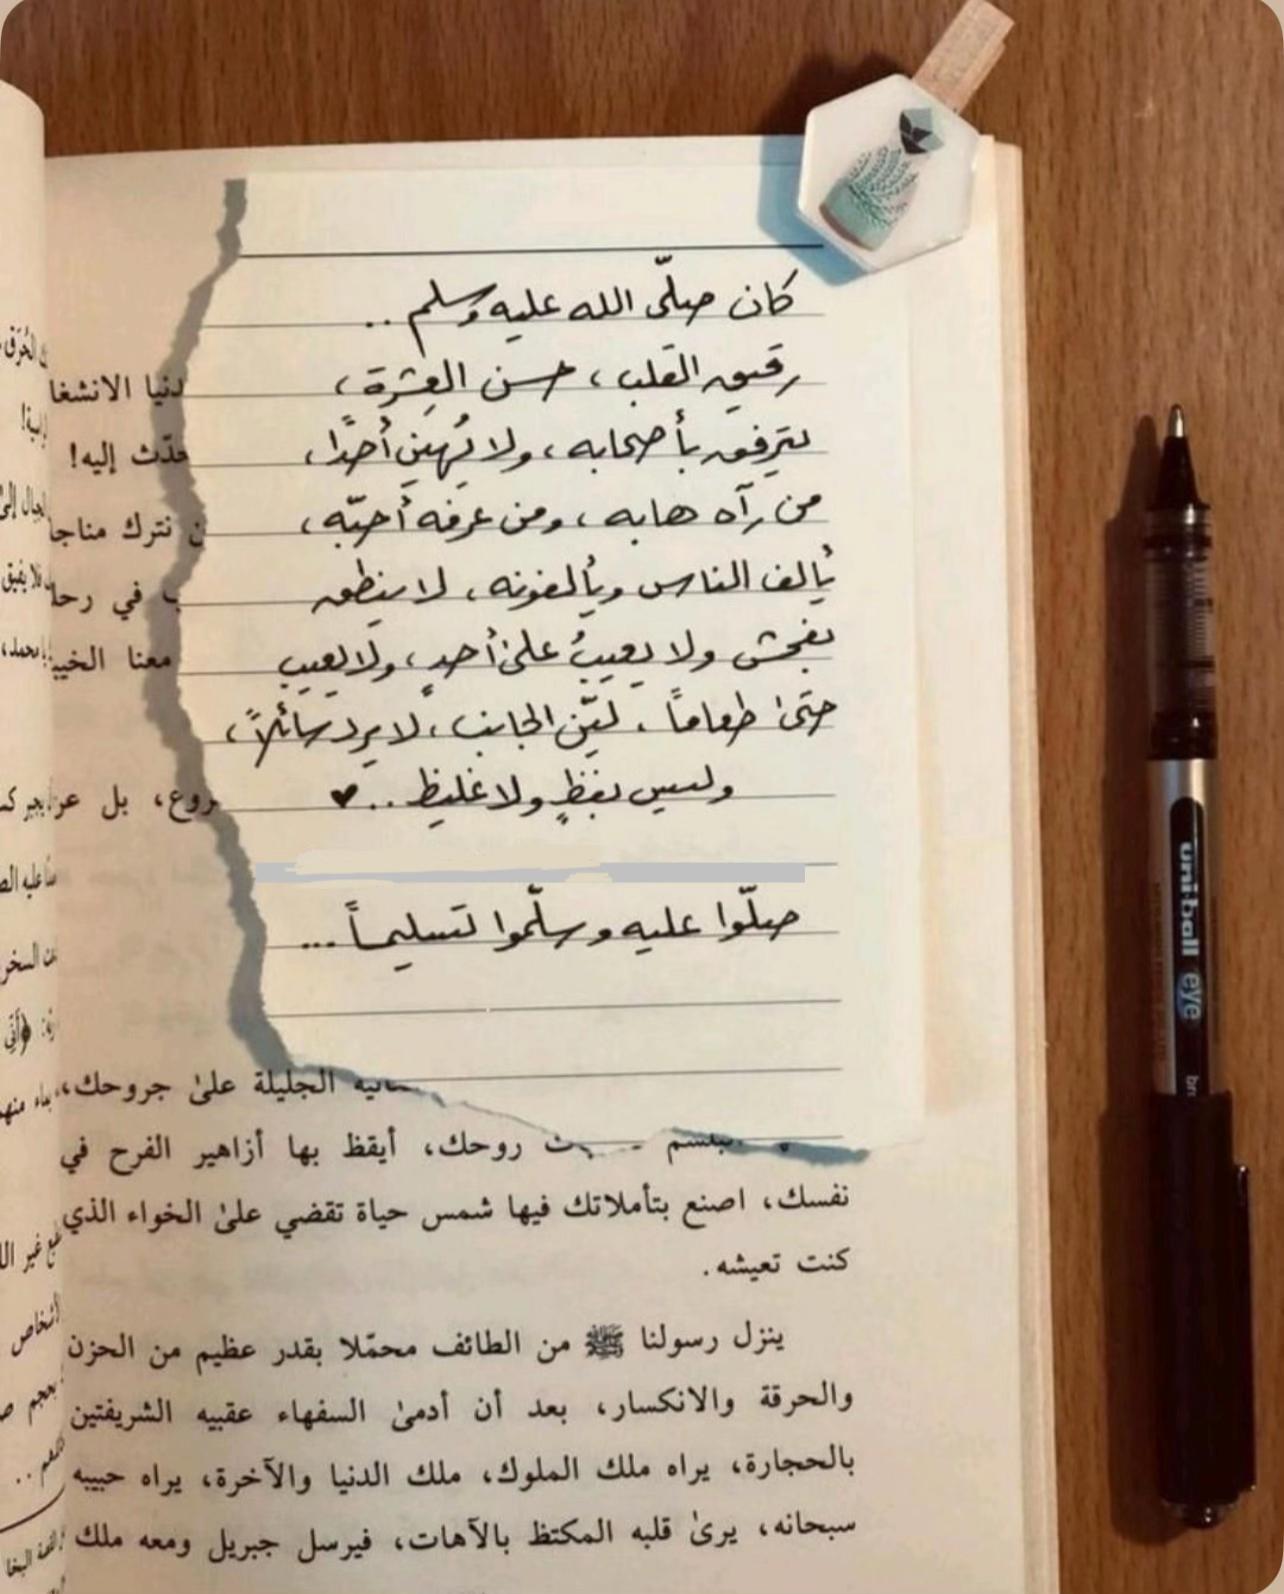 كان صلّى الله عليه وسلم ..
رقيق القلب، حسن العِشرة،
يترفق بأصحابه، ولا يُهين أحدًا،
من رآه هابه، ومن عرفه أحبّه،
يألف الناس ويألفونه، لا ينطق
بفحش ولا يعيبُ على أحدٍ، ولا يعيب
حتى طعاماً، ليّن الجانب، لا يرد سائلاً،
وليس بفظٍ ولا غليظ .. ♥
صلّوا عليه وسلّموا تسليماً ...
دنيا الانشغا
حدّث إليه!
نترك مناجا
في رحا
معنا الخيبـ
بل عز
الجليلة علىٰ جروحك،
روحك، أيقظ بها أزاهير الفرح في
نفسك، اصنع بتأملاتك فيها شمس حياة تقضي علىٰ الخواء الذي
كنت تعيشه.
ينزل رسولنا ﷺ من الطائف محمّلا بقدر عظيم من الحزن
والحرقة والانكسار، بعد أن أدمىٰ السفهاء عقبيه الشريفتين
بالحجارة، يراه ملك الملوك، ملك الدنيا والآخرة، يراه حبيبه
سبحانه، يرىٰ قلبه المكتظ بالآهات، فيرسل جبريل ومعه ملك
uni-ball eye